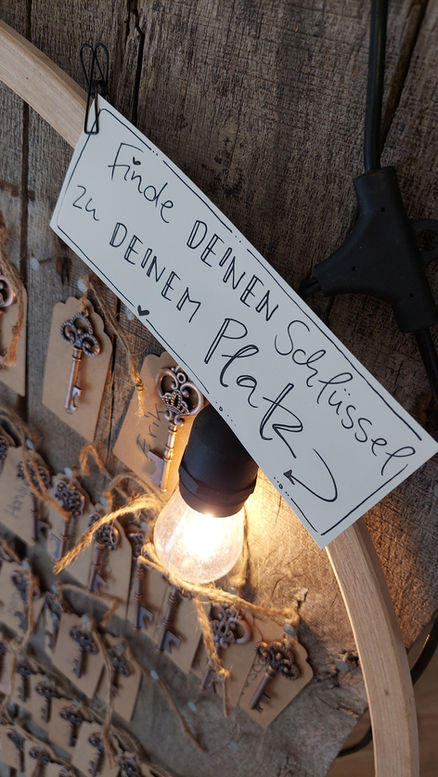 Finde DEINEN Schlüssel,
zu DEINEM Platz